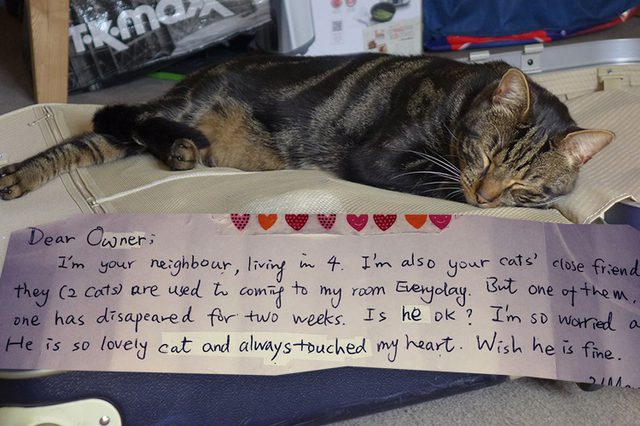 TK-maxx
Dear Owner;
I'm your neighbour, living in 4. I'm also your cats' close friend
they (2 cats) are used to coming to my room Everyday. But one of them.
one has disapeared for two weeks. Is he ok? I'm so worried a
He is so lovely cat and always touched my heart. Wish he is fine.